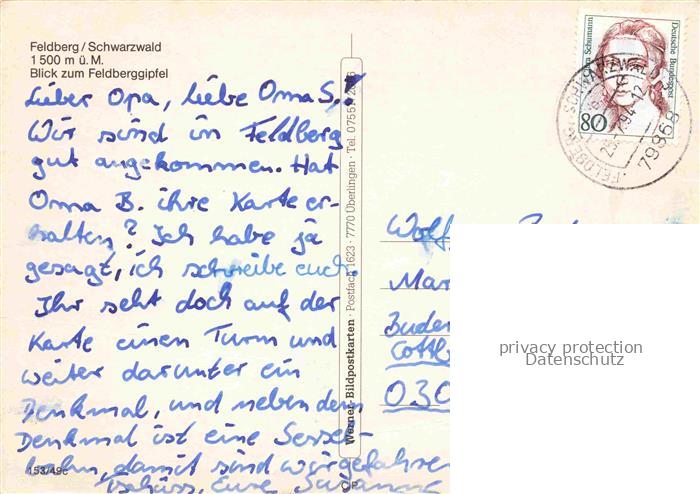 Feldberg/Schwarzwald
1500 m ü. M.
Blick zum Feldberggipfel
Lieber Opa, liebe Oma S.!
Wir sind in Feldberg
gut angekommen. Hat
Oma B. ihre Karte er-
halten? Ich habe ja
gesagt, ich schreibe euch.
Ihr seht doch auf der
Karte einen Turm und
weiter darunter ein
Denkmal, und neben dem
Denkmal ist eine Sessel-
bahn, damit sind wir gefahren
Tschüss, Eure Susanne
153/49c
Werner Bildpostkarten · Postfach 1623 · 7770 Überlingen · Tel. 07551/
Schumann
Deutsche Bundespost
80
FELDBERG
79868
Wolf
Mar
Buder
Cottb
030
privacy protection
Datenschutz